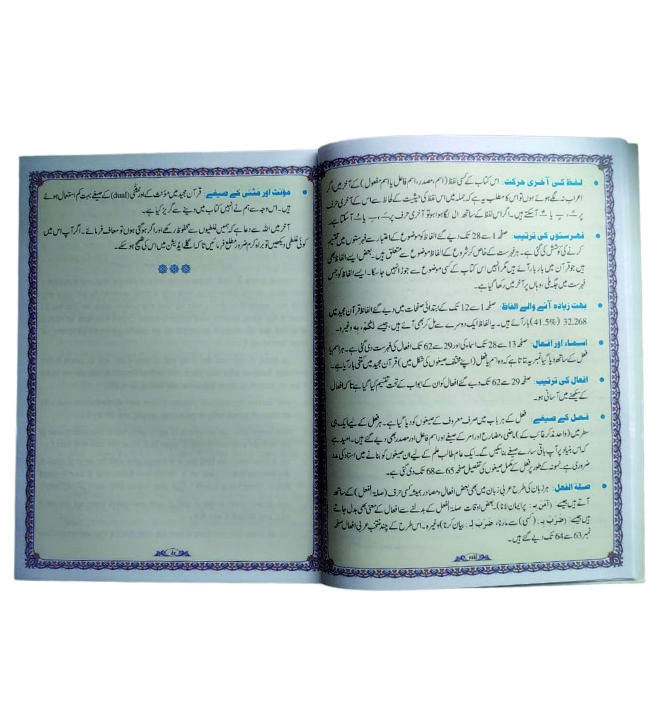 لفظ کی آخری حرکت: اس کتاب کے کسی لفظ (اسم، مصدر، اسم فاعل یا اسم مفعول) کے آخر میں اگر
اعراب نہ لگے ہوں تو اس کا مطلب یہ ہے کہ جملہ میں اس لفظ کی حیثیت کے لحاظ سے اس کے آخری حرف
پر آسکتے ہیں۔ اگر اس لفظ کے ساتھ ال لگا ہوا ہو تو آخری حرف پر آسکتا ہے۔
فہرستوں کی ترتیب: صفحہ 1 سے 28 تک دیے گئے الفاظ کو موضوع کے اعتبار سے فہرستوں میں تقسیم
کرنے کی کوشش کی گئی ہے۔ ہر فہرست کے خاص کر شروع کے الفاظ موضوع سے متعلق ہیں۔ بعض ایسے الفاظ بھی
ہیں جو قرآن میں بار بار آئے ہیں مگر انہیں اس کتاب کے کسی موضوع سے جوڑا نہیں جا سکا۔ ایسے الفاظ کو جس
فہرست میں جگہ ملی، وہاں پر آخر میں رکھا گیا ہے۔
بہت زیادہ آنے والے الفاظ: صفحہ 1 سے 12 تک کے ابتدائی صفحات میں دیے گئے الفاظ قرآن مجید میں
32,268 (41.5%) بار آئے ہیں۔ یہ الفاظ ایک دوسرے سے مل کر بھی آئے ہیں، جیسے لَهُمْ، بِهِ وغیرہ۔
اسماء اور افعال: صفحہ 13 سے 28 تک اسماء کی اور 29 سے 62 تک افعال کی فہرست دی گئی ہے۔ ہر اسم یا
فعل کے ساتھ دیا گیا نمبر یہ بتاتا ہے کہ وہ اسم یا فعل (اپنے مختلف صیغوں کی شکل میں) قرآن مجید میں کتنی بار آیا ہے۔
افعال کی ترتیب: صفحہ 29 سے 62 تک دیے گئے افعال کو ان کے ابواب کے تحت تقسیم کیا گیا ہے تاکہ افعال
کے سیکھنے میں آسانی ہو۔
فعل کے صیغے: فعل کے ہر باب میں صرف معروف کے صیغوں کو دیا گیا ہے۔ ہر فعل کے لیے ایک ہی
سطر میں (واحد مذکر غائب کے) ماضی، مضارع اور امر کے صیغے اور اسم فاعل اور مصدر بھی دیے گئے ہیں۔ امید ہے
کہ اس بنیاد پر آپ باقی سارے صیغے بنا سکیں گے۔ ایک عام طالب علم کے لیے ان صیغوں کو بنانے میں استاد کی مدد
ضروری ہے۔ نمونہ کے طور پر فعل کے مکمل صیغوں کی تفصیل صفحہ 65 سے 68 تک دی گئی ہے۔
صلۃ الفعل: ہر زبان کی طرح عربی زبان میں بھی بعض افعال و مصادر ہمیشہ کسی حرف (صلۃ الفعل) کے ساتھ
آتے ہیں جیسے: (آمَنَ بِـ: پر ایمان لانا)۔ بعض اوقات صلۃ الفعل کے بدلنے سے افعال کے معنی بھی بدل جاتے
ہیں جیسے: (ضَرَبَ بِـ: (کسی) سے مارنا، ضَرَبَ لَـ: بیان کرنا) وغیرہ۔ اس طرح کے چند منتخب عربی افعال صفحہ
نمبر 63 سے 64 تک دیے گئے ہیں۔
مؤنث اور مثنی کے صیغے: قرآن مجید میں مؤنث کے اور مثنیٰ (dual) کے صیغے بہت کم استعمال ہوئے
ہیں۔ اس وجہ سے ہم نے انہیں کتاب میں دینے سے گریز کیا ہے۔
آخر میں اللہ سے دعا ہے کہ ہمیں غلطیوں سے محفوظ رکھے اور اگر ہو گئی ہوں تو معاف فرمائے۔ اگر آپ اس میں
کوئی غلطی دیکھیں تو براہ کرم ضرور مطلع فرمائیں تاکہ اگلے ایڈیشن میں اس کی تصحیح ہو سکے۔